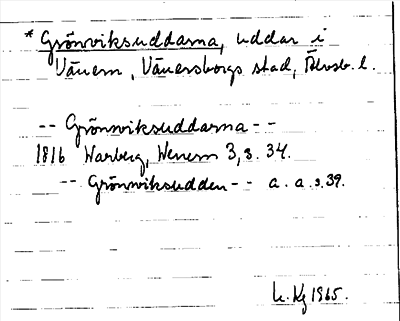 * Grönviksuddarna, uddar i
Vänern, Vänersborgs stad, Älvsb. l.
-- Grönnviksuddarna --
1816 Warberg, Wenern 3, s. 34.
-- Grönnviksudden -- a. a. s. 39.
1965.